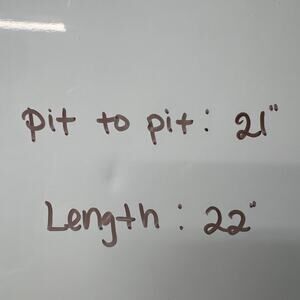 pit to pit: 21"
Length: 22"